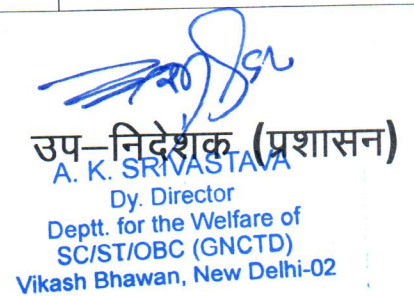 उप–निदेशक (प्रशासन)
A. K. SRIVASTAVA
Dy. Director
Deptt. for the Welfare of
SC/ST/OBC (GNCTD)
Vikash Bhawan, New Delhi-02